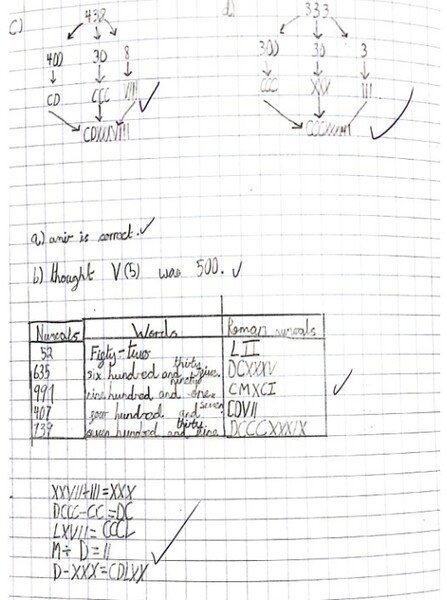 c) 438 d) 333
400 30 8 300 30 3
CD CCC VIII CCC XXX III
CDXXXVIII CCCXXXIII
a) amir is correct.
b) thought V(5) was 500.
Numerals Words Roman numerals
52 Fifty-two LII
635 six hundred and thirty five. DCXXXV
991 nine hundred and ninety one. CMXCI
407 four hundred and seven CDVII
739 seven hundred and thirty nine DCCCXXXIX
XXVII+III=XXX
DCCC-CC=DC
M÷D=II
D-XXX=CDLXX